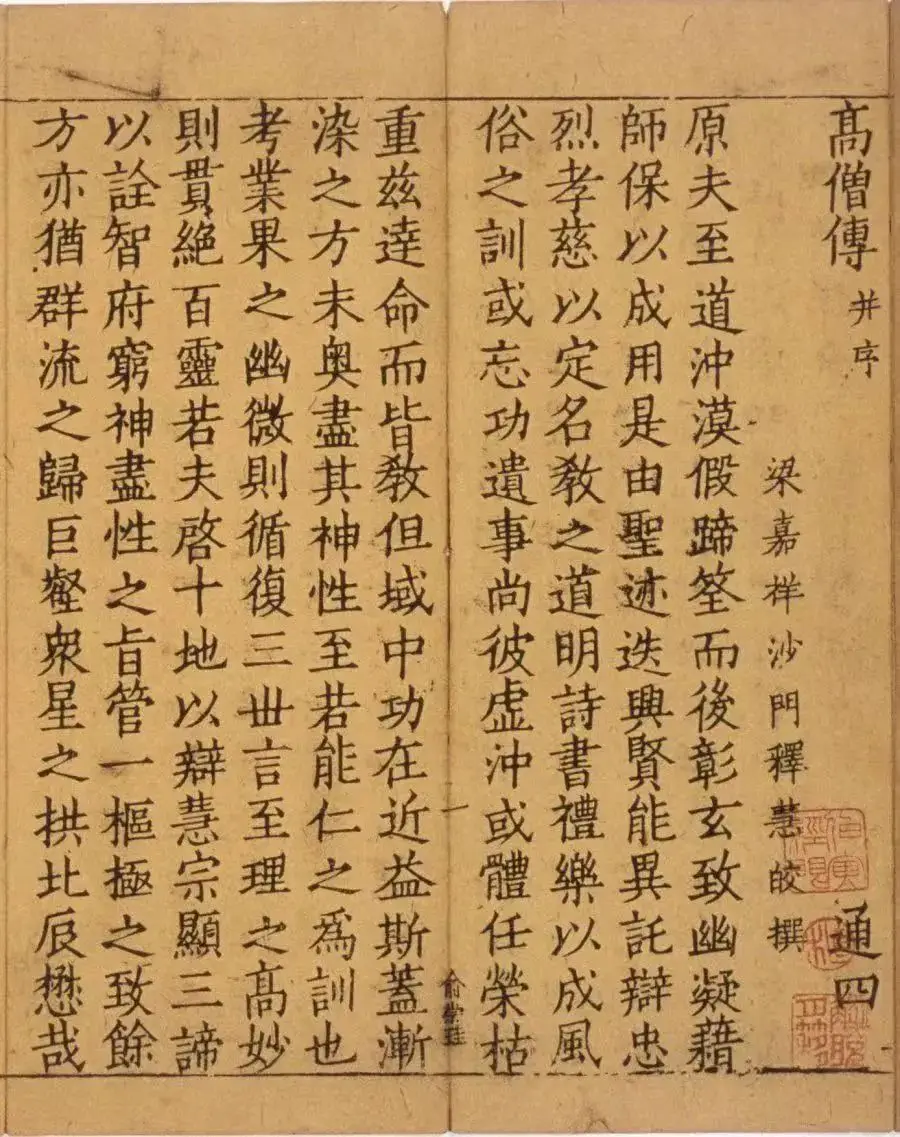 高僧傳 并序 通四
梁嘉祥沙門釋慧皎撰
原夫至道沖漠假蹄筌而後彰玄致幽凝藉
師保以成用是由聖迹迭興賢能異託辯忠
烈孝慈以定名教之道明詩書禮樂以成風
俗之訓或忘功遺事尚彼虛沖或體任榮枯
重茲達命而皆教但域中功在近益斯蓋漸
染之方未奧盡其神性至若能仁之為訓也
考業果之幽微則循復三世言至理之高妙
則貫絕百靈若夫啓十地以辯慧宗顯三諦
以詮智府窮神盡性之旨管一樞極之致餘
方亦猶群流之歸巨壑衆星之拱北辰懋哉